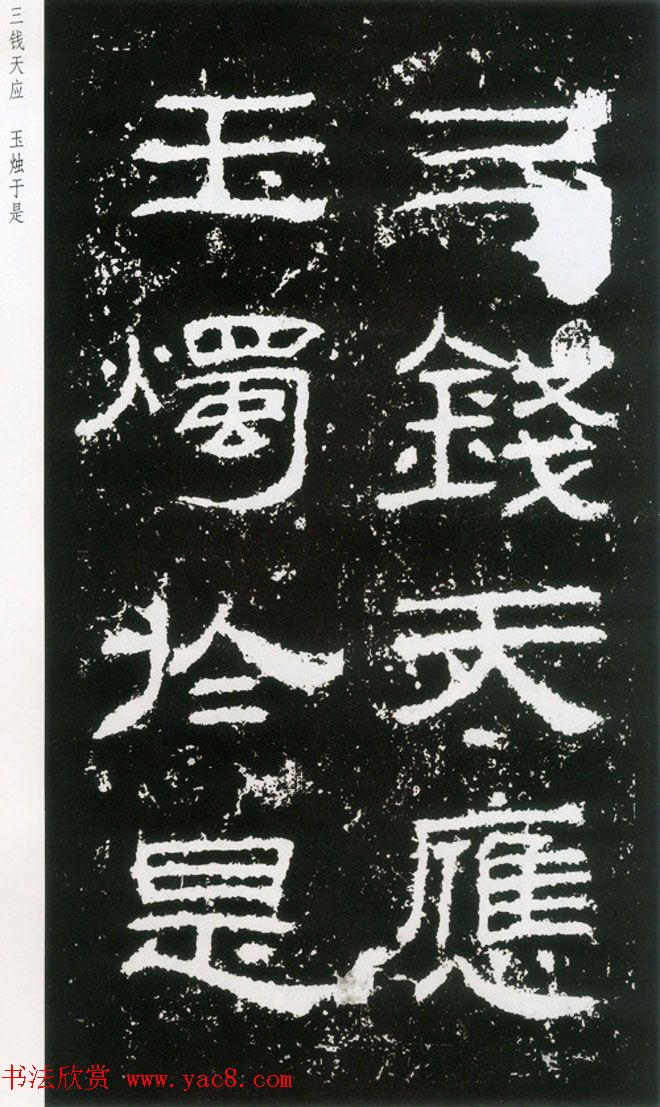 三錢天應
玉燭於是
三钱天应　玉烛于是
书法欣赏 www.yac8.com